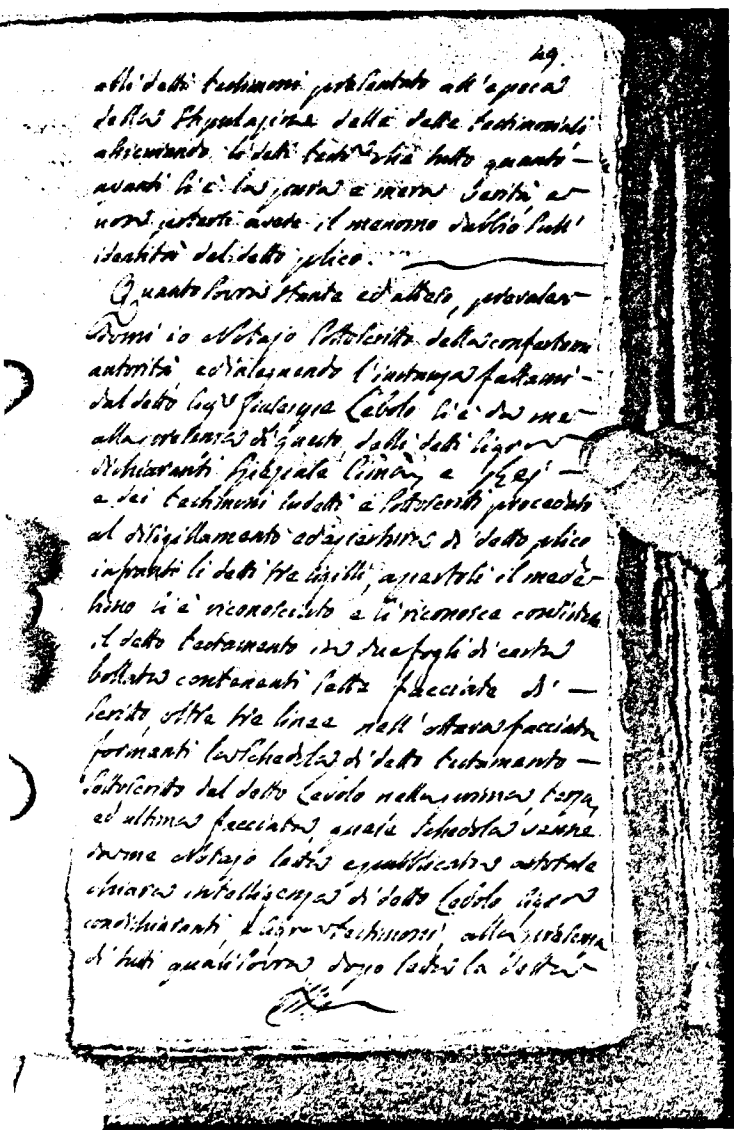 49.
alli detti testimoni presentato all'epoca
della stipulazione delle dette testimoniali
li detti testi che tutto quanto —
avanti si è la pura e mera verità, e
non potersi avere il menomo dubbio sull'
identità del detto plico.
Quanto sovra stante ed atteso, prevalen-
domi io Notajo sottoscritto della confertami
autorità ed inseguendo l'instanza fattami —
dal detto sigr Giuseppe Lebolo si è da me
alla presenza di questo, delli detti sigri
dichiaranti e —
e dei testimoni sudetti e sottoscritti proceduto
al disigillamento ed apertura di detto plico
infranti li detti tre sigilli, apertosi il mede-
simo si è riconosciuto e si riconosce consistere
il detto testamento in due fogli di carta
bollata contenenti sette facciate di —
scritto, oltre tre linee nell'ottava facciata
formanti la schedola di detto testamento —
sottoscritto dal detto Lebolo nella prima, terza,
ed ultima facciata, quale schedola venne
da me Notajo letta e pubblicata a totale
chiara intelligenza di detto Lebolo sigri
condichiaranti e sigri testimoni alla presenza
di tutti quali sovra dopo letta la detta